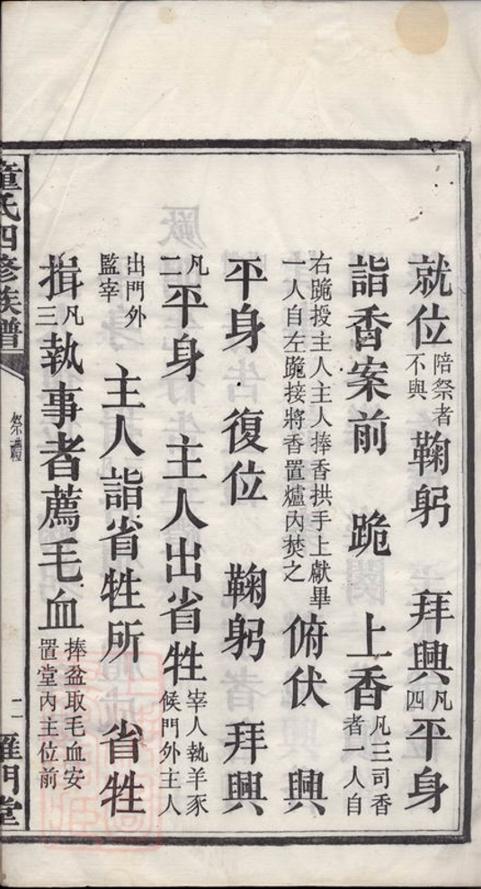 就位陪祭者不與 鞠躬 拜興凡四平身
詣香案前 跪 上香凡三司香者一人自
右跪授主人主人捧香拱手上獻畢一人自左跪接將香置爐內焚之 俯伏 興
平身 復位 鞠躬 拜興
凡二平身 主人出省牲宰人執羊豕候門外主人
出門外監宰 主人詣省牲所 省牲
揖凡三執事者薦毛血捧盆取毛血安置堂內主位前
童氏四修族譜 祭禮 二 雁門堂